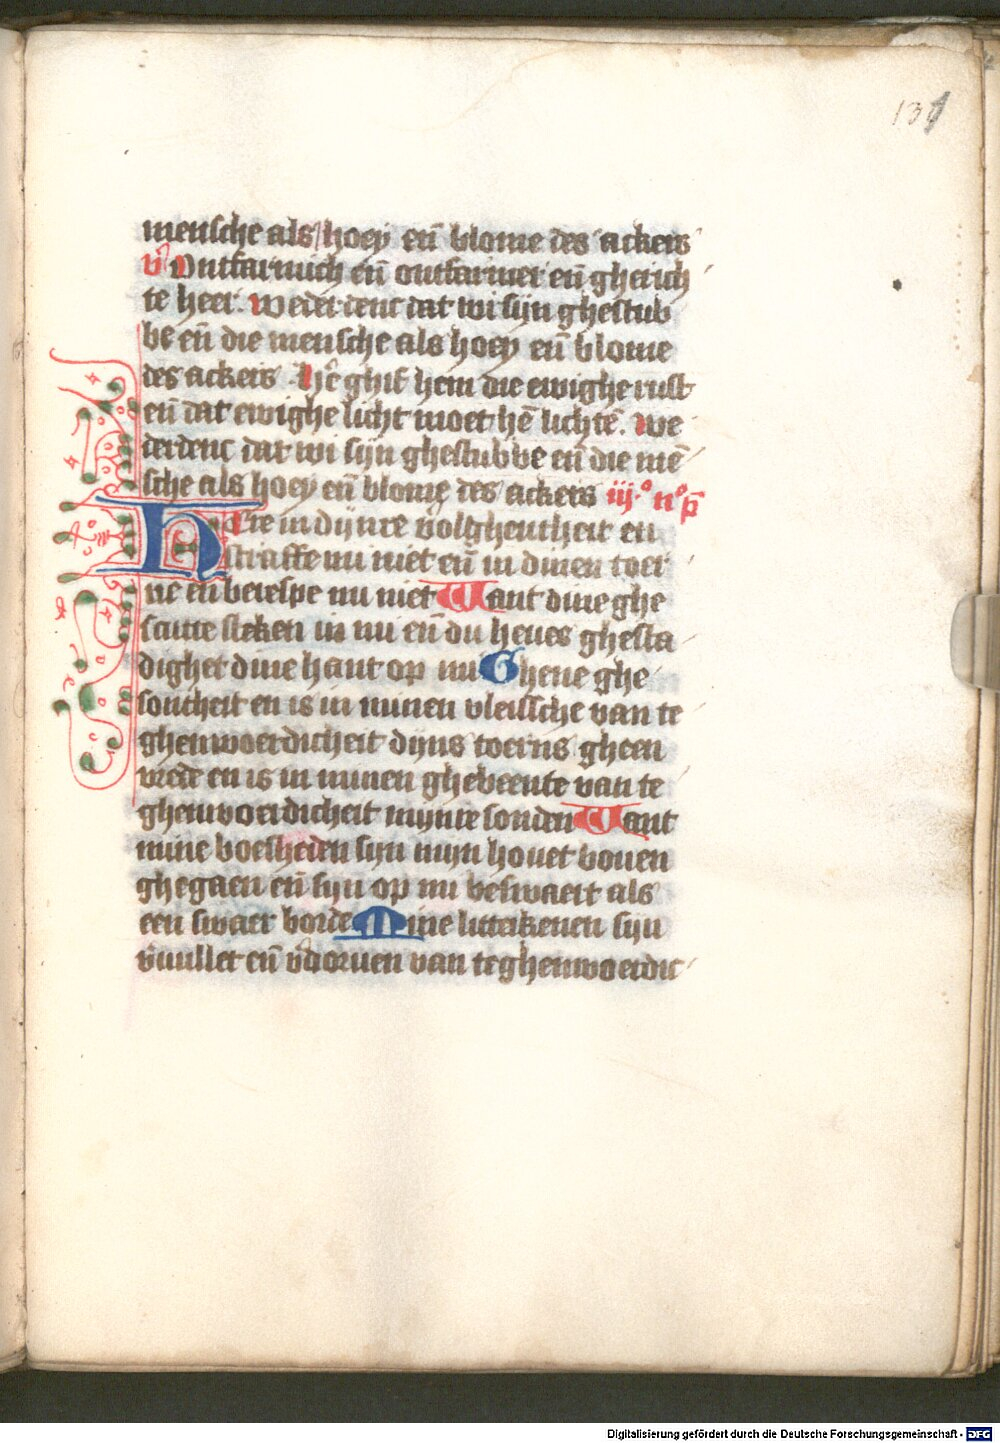 131
mensche als hoey en̄ blome des ackers
v̓ Ontfarmich en̄ ontfarmer en̄ gherich
te heer. weder denc dat wi sijn ghestub
be en̄ die mensche als hoey en̄ blome
des ackers. Hc̄ ghif hem die ewighe rust
en̄ dat ewighe licht moet hē lichtē. we
derdenc dat wi sijn ghestubbe en̄ die mē
sche als hoey en̄ blome des ackers iij.o n.o p̄
Here in dijnre v̓bolghentheit en
straffe mi niet en̄ in dinen toer
ne en̄ berespe mi niet Want dine ghe
scutte steken in mi en̄ du heues ghesta
dighet dine hant op mi Ghene ghe
sontheit en is in minen vleissche van te
ghenwoerdicheit dijns toerns gheen
vrede en is in minen ghebeente van te
ghenwoerdicheit mijnre sonden Want
mine boesheden sijn mijn houet bouen
ghegaen en̄ sijn op mi beswaert als
een swaer borde Mine litteikenen sijn
v̓uullet en̄ v̓doruen van teghenwoerdic
Digitalisierung gefördert durch die Deutsche Forschungsgemeinschaft - DFG